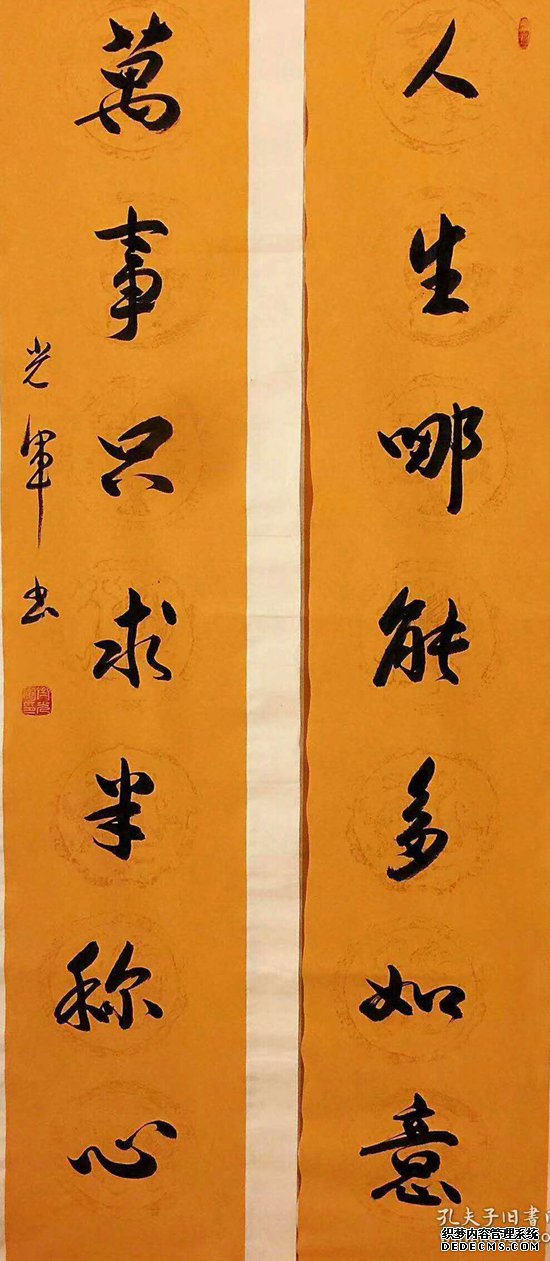 人生哪能多如意
萬事只求半称心
光军书
孔夫子旧書
织梦内容管理系统
DEDECMS.COM